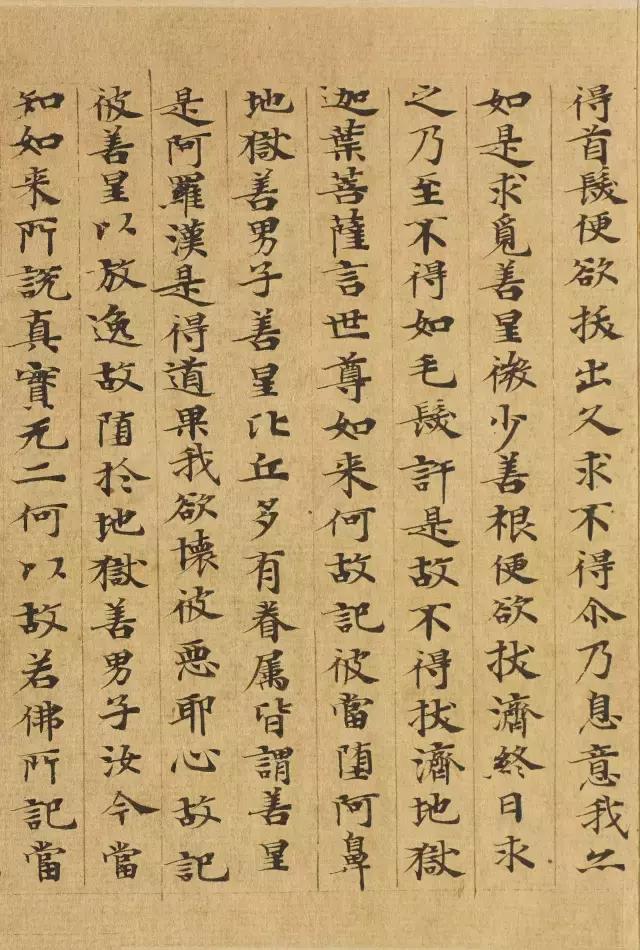 得首髮便欲拔出久求不得尒乃息意我亦
如是求覓善星微少善根便欲拔濟終日求
之乃至不得如毛髮許是故不得拔濟地獄
迦葉菩薩言世尊如来何故記彼當堕阿鼻
地獄善男子善星比丘多有眷属皆謂善星
是阿羅漢是得道果我欲壞彼惡耶心故記
彼善星以放逸故堕於地獄善男子汝今當
知如来所說真實无二何以故若佛所記當